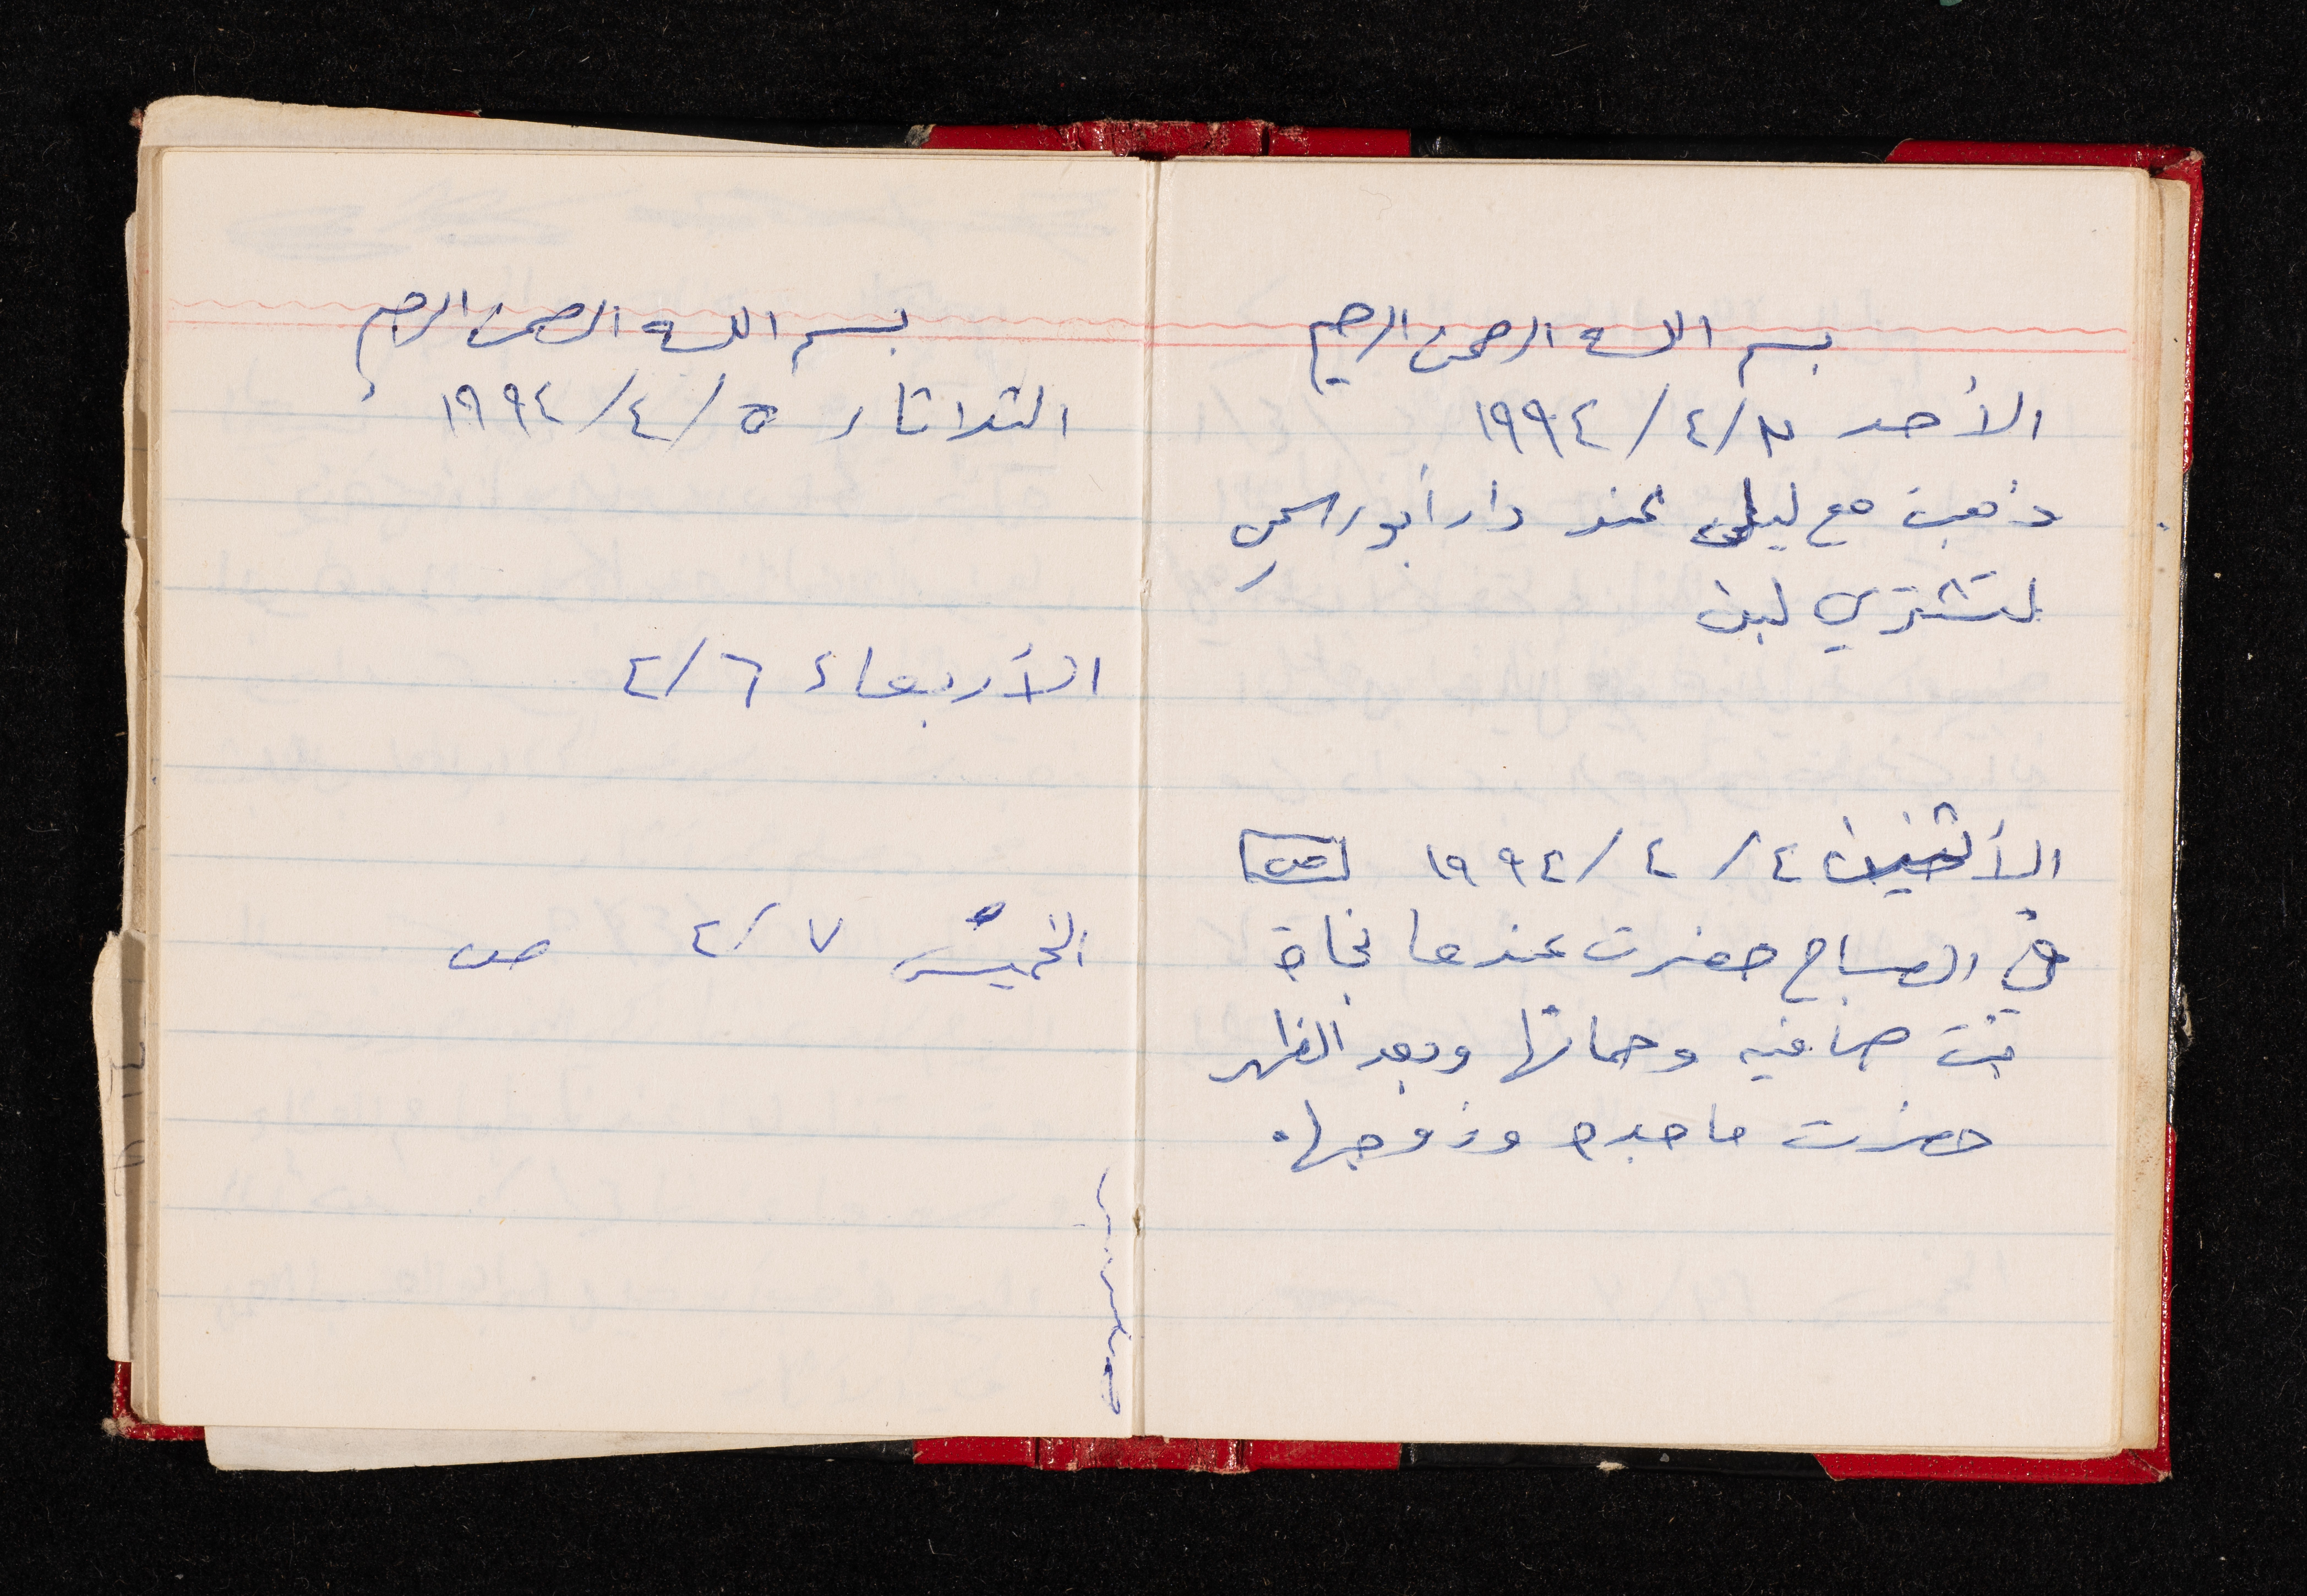 بسم الله الرحمن الرحيم
الأحد ٣/٤/١٩٩٤
ذهبت مع ليلى عند دار أبو
لتشتري لبن
الأثنين ٤/٤/١٩٩٤ ص
في الصباح حضرت عندها نجاة
بنت صافيه وحماتها وبعد الظهر
حضرت ماجده وزوجها.
بسم الله الرحمن الرحيم
الثلاثاء ٥/٤/١٩٩٤
الأربعاء ٦/٤
الخميس ٧/٤ ص